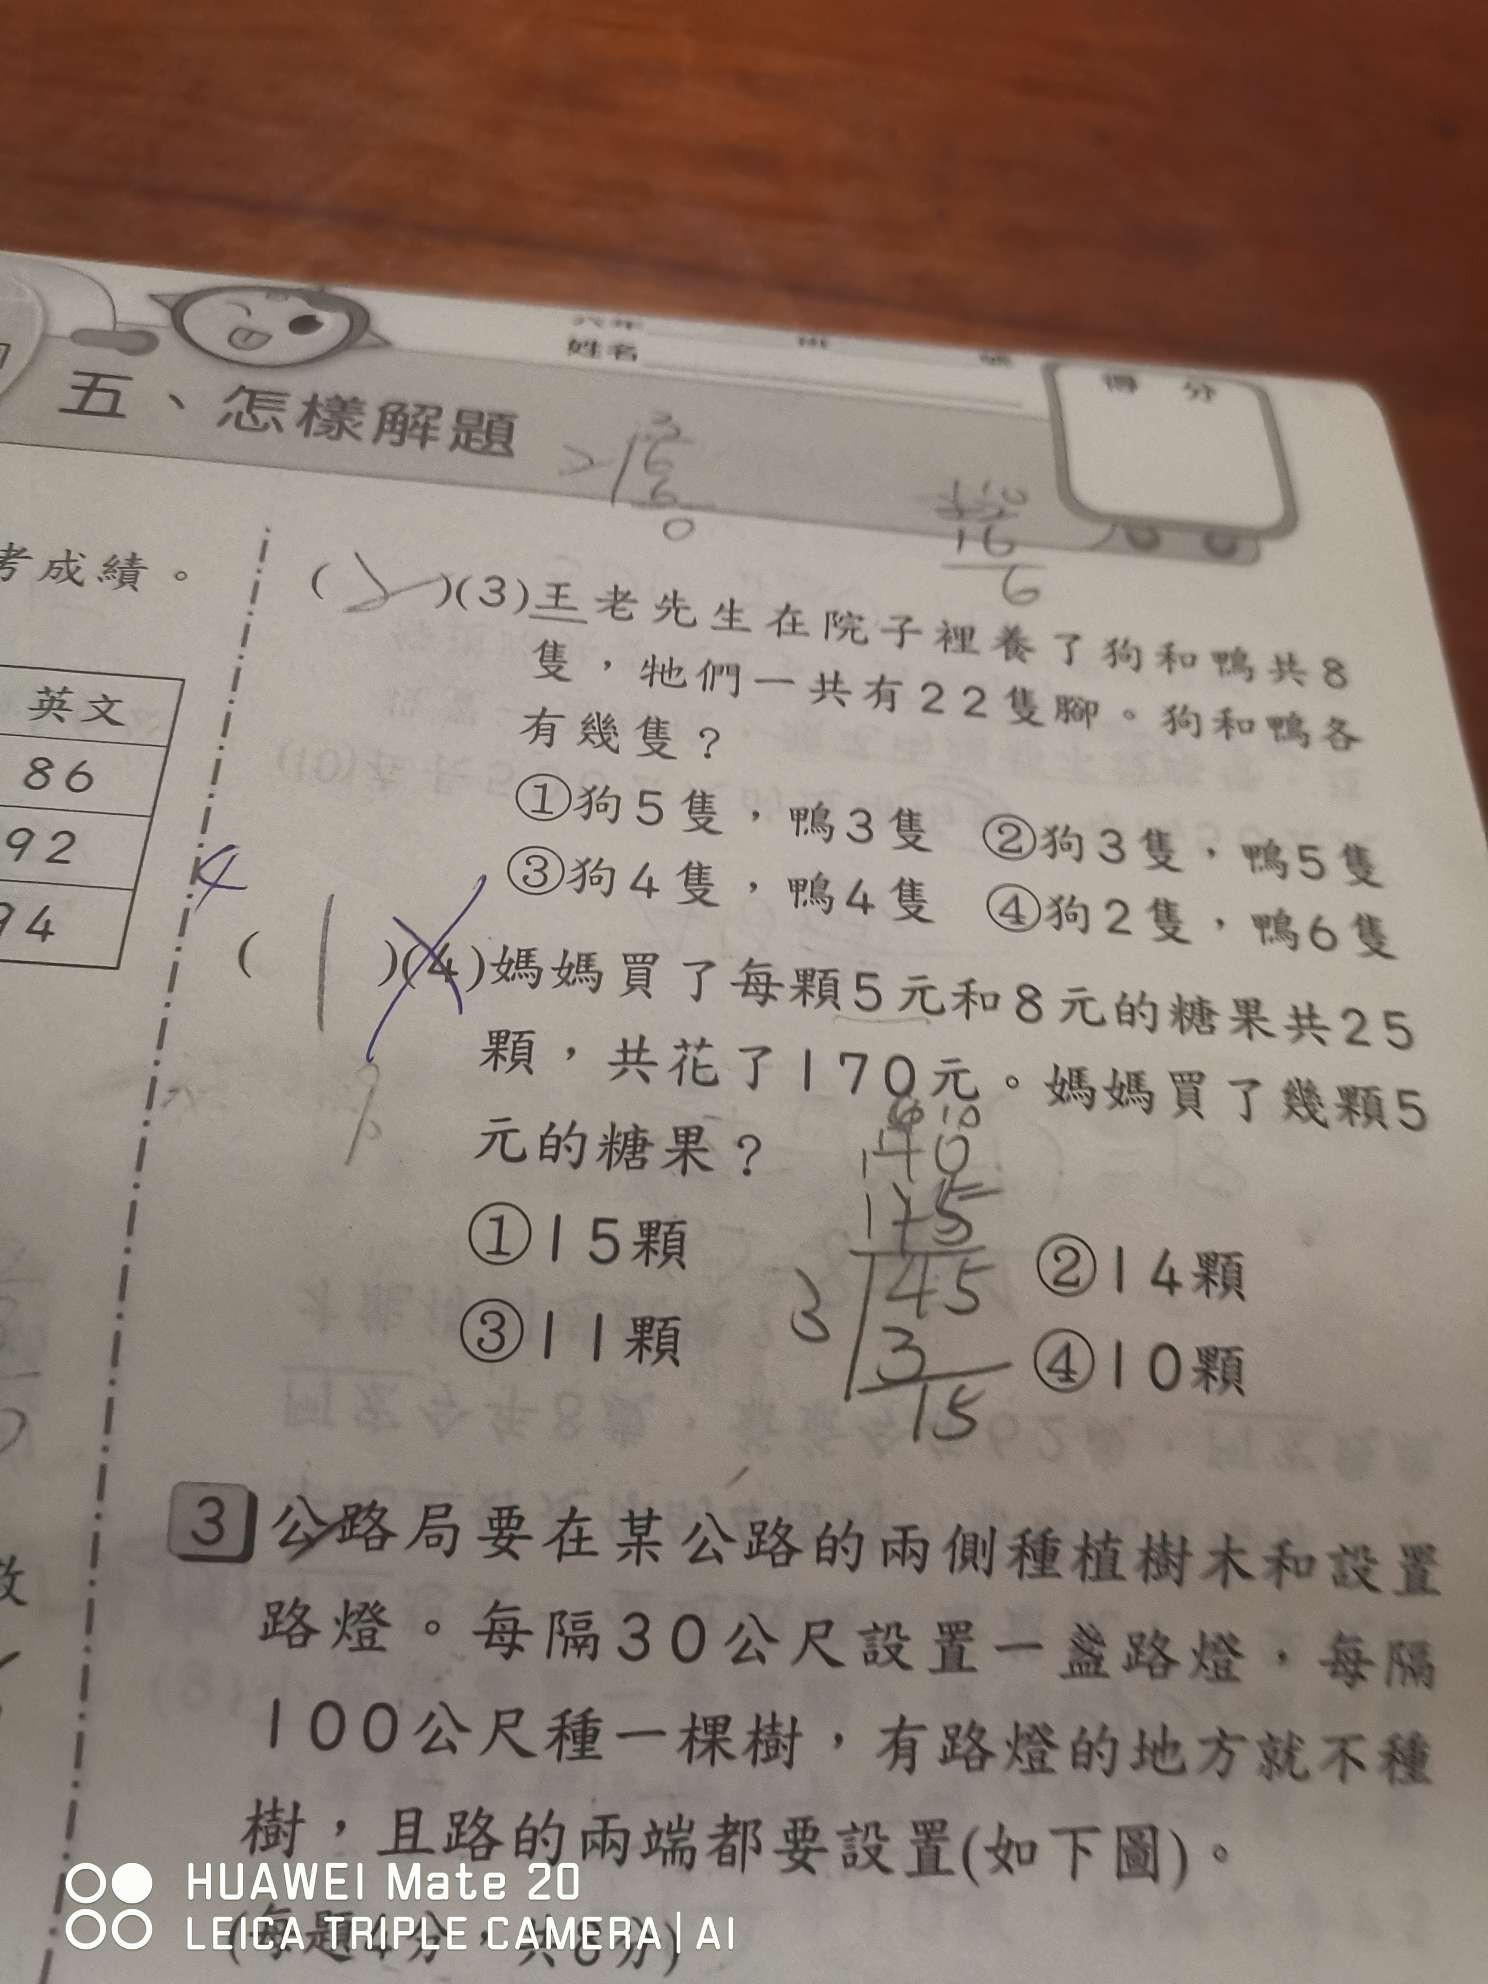 姓名
得分
五、怎樣解題
考成績。
英文
86
92
94
(2)(3)王老先生在院子裡養了狗和鴨共8
隻，牠們一共有22隻腳。狗和鴨各
有幾隻？
①狗5隻，鴨3隻 ②狗3隻，鴨5隻
③狗4隻，鴨4隻 ④狗2隻，鴨6隻
4
(1)(4)媽媽買了每顆5元和8元的糖果共25
顆，共花了170元。媽媽買了幾顆5
元的糖果？
①15顆 ②14顆
③11顆 ④10顆
175
3 45
3
15
3 公路局要在某公路的兩側種植樹木和設置
路燈。每隔30公尺設置一盞路燈，每隔
100公尺種一棵樹，有路燈的地方就不種
樹，且路的兩端都要設置(如下圖)。
(每題4分，共8分)
HUAWEI Mate 20
LEICA TRIPLE CAMERA | AI